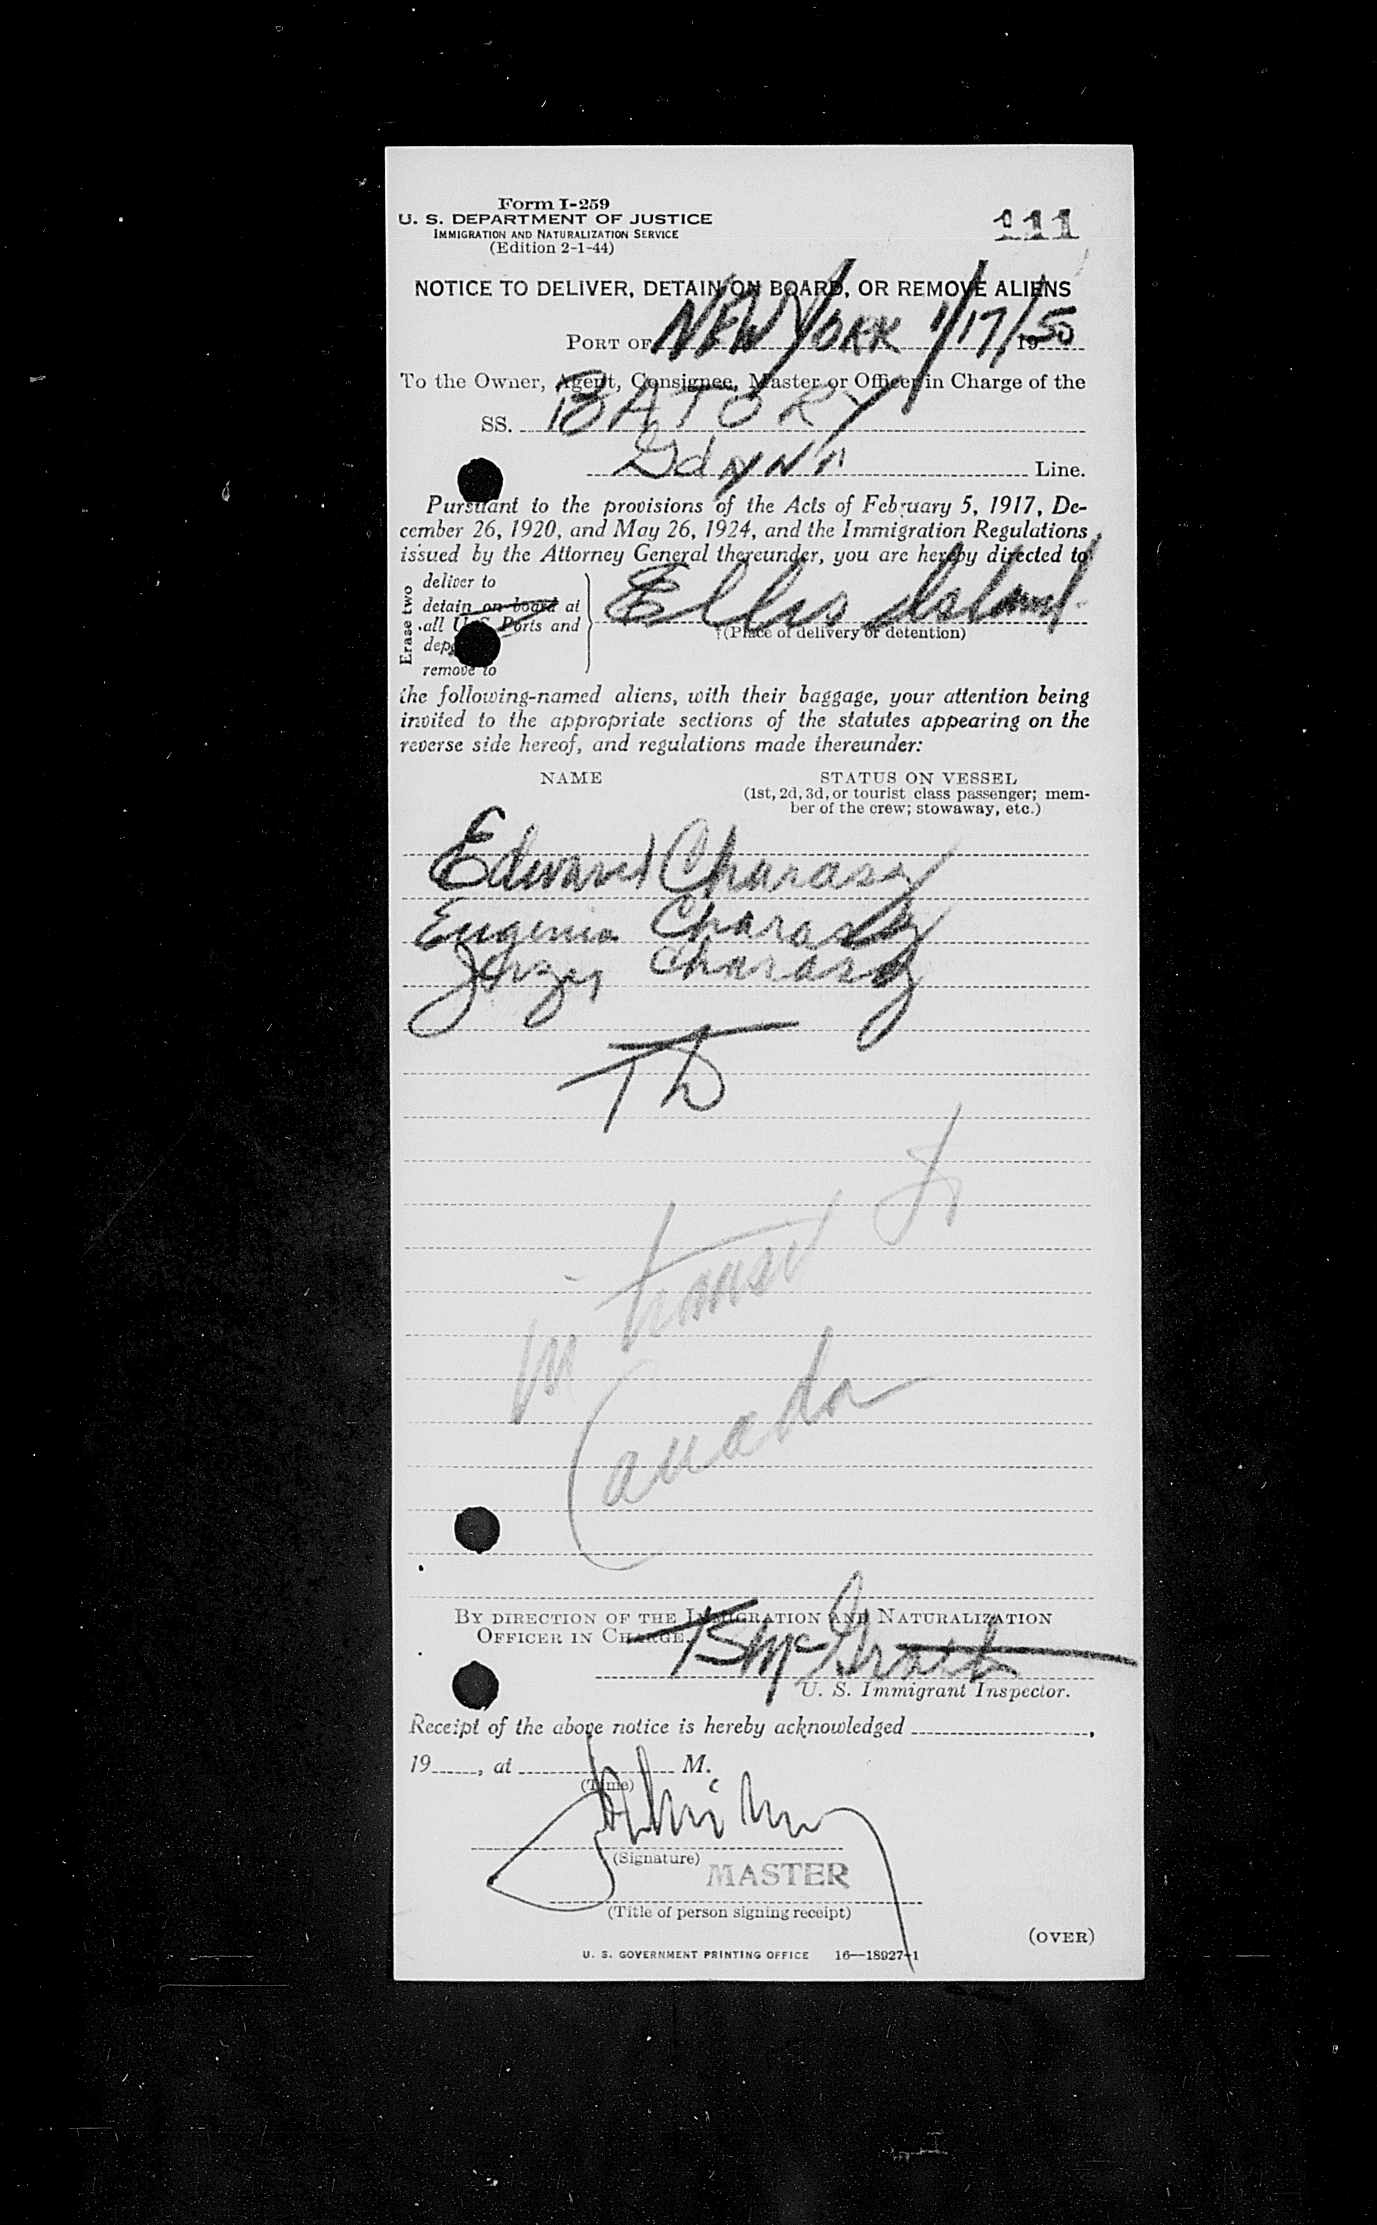 Form I-259
U. S. DEPARTMENT OF JUSTICE
IMMIGRATION AND NATURALIZATION SERVICE
(Edition 2-1-44)
111
NOTICE TO DELIVER, DETAIN ON BOARD, OR REMOVE ALIENS
PORT OF NEW YORK 1/17/, 1950
To the Owner, Agent, Consignee, Master or Officer in Charge of the
SS. BATORY
Gdynia Line.
Pursuant to the provisions of the Acts of February 5, 1917, De-
cember 26, 1920, and May 26, 1924, and the Immigration Regulations
issued by the Attorney General thereunder, you are hereby directed to
Erase two
deliver to
detain on board at
all U. S. Ports and
remove to
Ellis Island
(Place of delivery or detention)
the following-named aliens, with their baggage, your attention being
invited to the appropriate sections of the statutes appearing on the
reverse side hereof, and regulations made thereunder:
NAME
STATUS ON VESSEL
(1st, 2d, 3d, or tourist class passenger; mem-
ber of the crew; stowaway, etc.)
Edward Charasz
Eugenia Charasz
Jerzy Charasz
TD
in transit to
Canada
BY DIRECTION OF THE IMMIGRATION AND NATURALIZATION
OFFICER IN CHARGE.
TS McGrath
U. S. Immigrant Inspector.
Receipt of the above notice is hereby acknowledged ,
19 , at M.
(Time)
(Signature)
MASTER
(Title of person signing receipt)
(OVER)
U. S. GOVERNMENT PRINTING OFFICE 16—18927-1